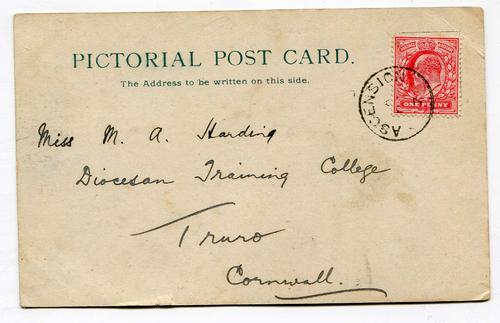 PICTORIAL POST CARD.
The Address to be written on this side.
ASCENSION
ONE PENNY
Miss M. A. Harding
Diocesan Training College
Truro
Cornwall.